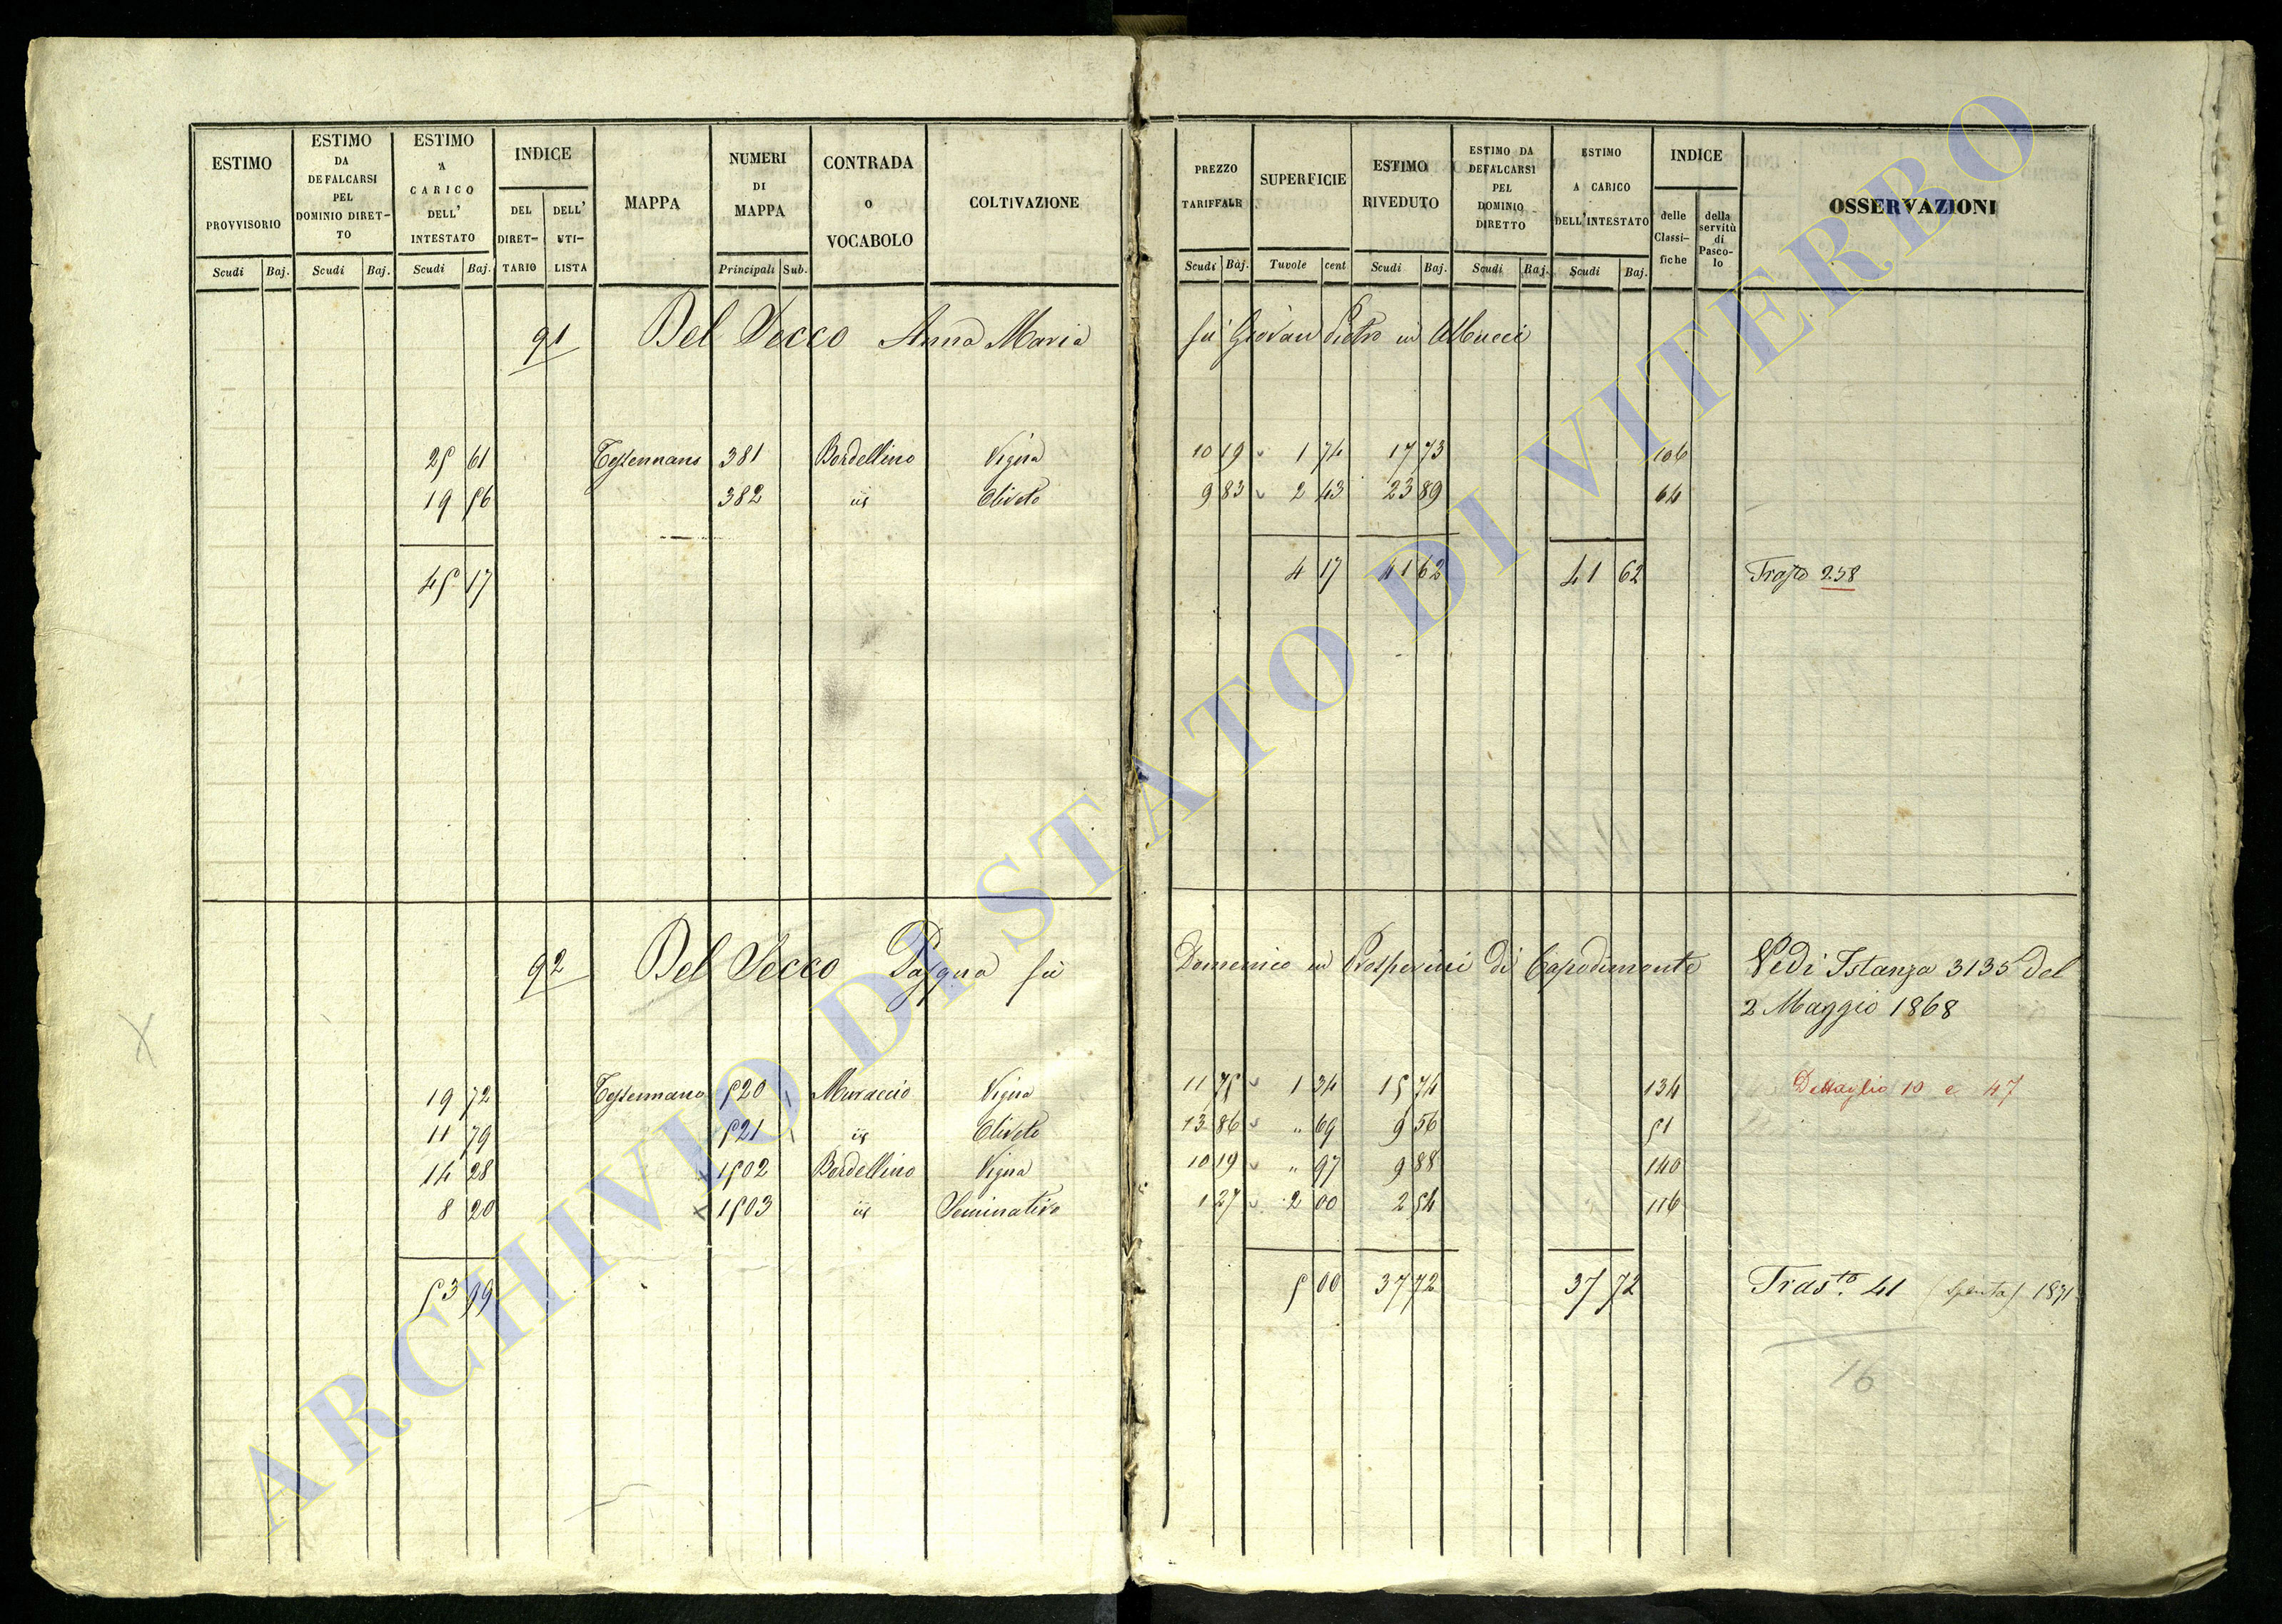 ESTIMO PROVVISORIO Scudi Baj.
ESTIMO DA DEFALCARSI PEL DOMINIO DIRET-TO Scudi Baj.
ESTIMO A CARICO DELL' INTESTATO Scudi Baj.
INDICE DEL DIRET-TARIO DELL' UTI-LISTA
MAPPA
NUMERI DI MAPPA Principali Sub.
CONTRADA O VOCABOLO
COLTIVAZIONE
PREZZO TARIFFALE Scudi Baj.
SUPERFICIE Tavole cent
ESTIMO RIVEDUTO Scudi Baj.
ESTIMO DA DEFALCARSI PEL DOMINIO DIRETTO Scudi Baj.
ESTIMO A CARICO DELL'INTESTATO Scudi Baj.
INDICE delle Classi-fiche della servitù di Pasco-lo
OSSERVAZIONI
91 Del Secco Anna Maria fù Giovan Pietro in Albucci
25 61 Tessennano 381 Bordellino Vigna 10 19 1 74 17 73 106
19 56 382 iis Oliveto 9 83 2 43 23 89 64
45 17 4 17 41 62 41 62 Trasto 258
92 Del Secco Pasqua fù Domenico in Prosperini di Capodimonte Vedi Istanza 3135 del
2 Maggio 1868
19 72 Tessennano 520 Muraccio Vigna 11 75 1 34 15 74 134 Dettaglio 10 e 47
11 79 521 iis Oliveto 13 86 " 69 9 56 51
14 28 1502 Bordellino Vigna 10 19 " 97 9 88 140
8 20 1503 iis Seminativo 1 27 2 00 2 54 116
53 99 5 00 37 72 37 72 Trasto. 41 (Spenta) 1871
16
ARCHIVIO DI STATO DI VITERBO